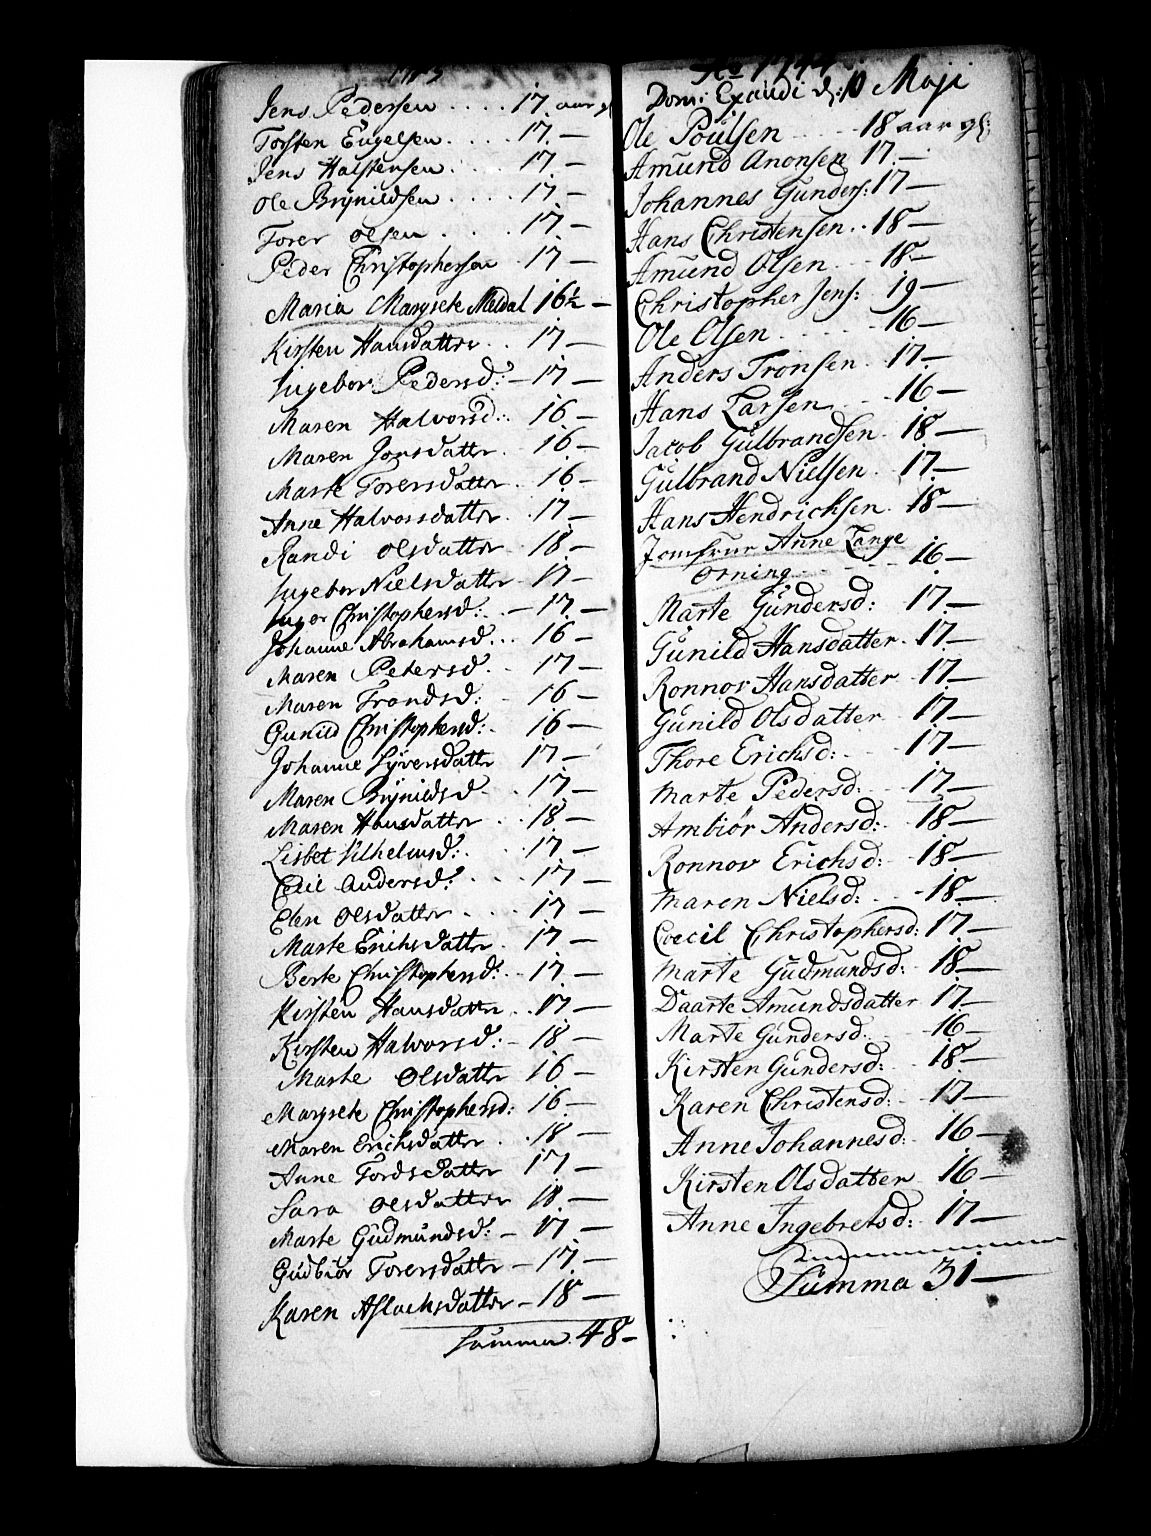 1743
Jens Pedersen .... 17 aar gl
Torsten Engelsen .... 17 —
Jens Halstensen .... 17 —
Ole Brynildsen .... 17 —
Torer Olsen .... 17 —
Peder Christophersen 17 —
Maria Margrete Meldal 16½ —
Kirsten Hansdatter .. 17 —
Ingebor Pedersd: — 17 —
Maren Halvorsd: . 16 —
Maren Jonsdatter . 16 —
Marte Torersdatter . 16 —
Anne Halvorsdatter . 17 —
Randi Olsdatter . 18 —
Ingebor Nielsdatter . 17 —
Inger Christophersd: . — 17 —
Johanne Abrahamsd. .. 16 —
Maren Petersd. .. 17 —
Maren Trondsd: . 16 —
Gunild Christophersd: . 16 —
Johanne Syversdatter 17 —
Maren Brynildsd . 17 —
Maren Hansdatter .. 18 —
Lisbet Vilhelmsd: .. 17 —
Cecil Andersd: ... 17 —
Elen Olsdatter .... 17 —
Marte Erichsdatter . 17 —
Berte Christophersd: .. 17 —
Kirsten Hansdatter .. 17 —
Kirsten Halvorsd: — 18 —
Marte Olsdatter 16 —
Margrete Christophersd: 16 —
Maren Erichsdatter .. 18 —
Anne Tordsdatter 17 —
Sara Olsdatter 18 —
Marte Gudmundsd: — 17 —
Gudbiør Torersdatter — 17 —
Karen Aslachsdatter — 18 —
Summa 48 —
Ao 1744
Dom: Exaudi d: 10 Maji
Ole Poulsen .... 18 aar gl:
Amund Anonsen 17 —
Johannes Gunders: 17 —
Hans Christensen .. 18 —
Amund Olsen .. 18 —
Christopher Jens: 19 —
Ole Olsen .... 16 —
Anders Tronsen . 17 —
Hans Larsen ... 16 —
Jacob Gulbrandsen . 18 —
Gulbrand Nielsen . 17 —
Hans Hendrichsen . 18 —
Jomfrue Anne Lange
Orning .... 16 —
Marte Gundersd: 17 —
Gunild Hansdatter . 17 —
Ronnov Hansdatter 17 —
Gunild Olsdatter 17 —
Thore Erichsd: ... 17 —
Marte Pedersd: . 17 —
Ambiør Andersd: . 18 —
Ronnov Erichsd: . 18 —
Maren Nielsd: .. 18 —
Coecil Christophersd: 17 —
Marte Gudmundsd: . 18 —
Daarte Amundsdatter 17 —
Marte Gundersd: .. 16 —
Kirsten Gundersd: .. 18 —
Karen Christensd: . 17 —
Anne Johannesd: . 16 —
Kirsten Olsdatter . 16 —
Anne Ingebretsd: . 17 —
Summa 31 —